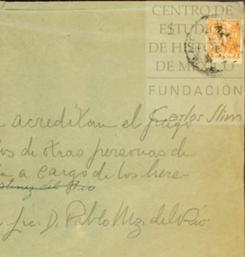 CENTRO DE
ESTUDIOS
DE HISTORIA
DE MÉXICO
FUNDACIÓN
Carlos Slim
acreditan el pago
de otras personas de
a cargo de los here-
Lic. D. Pablo Mz. del Río